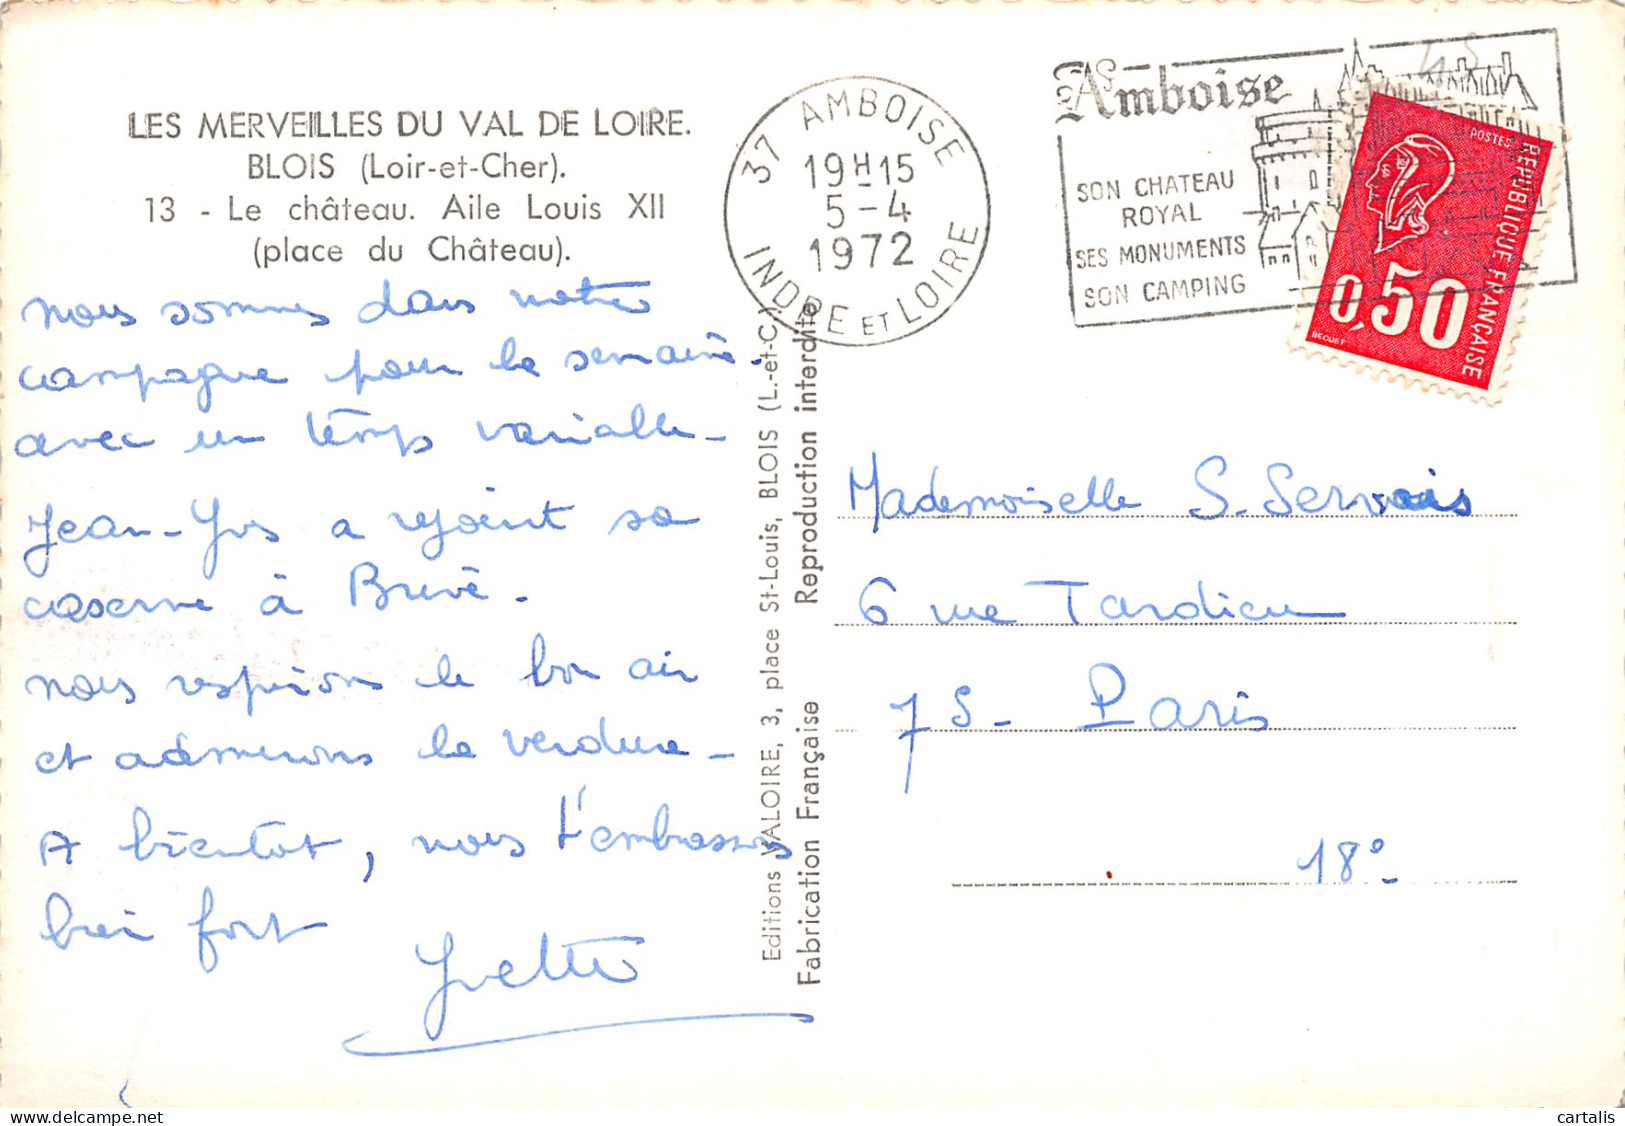 LES MERVEILLES DU VAL DE LOIRE.
BLOIS (Loir-et-Cher).
13 - Le château. Aile Louis XII
(place du Château).
nous sommes dans notre
campagne pour la semaine.
avec un temps variable -
Jean-Yves a rejoint sa
caserne à Brive.
nous respirons le bon air
et admirons la verdure -
A bientôt, nous t'embrassons
bien fort
Yvette
Editions VALOIRE, 3, place St-Louis, BLOIS (L.-et-C.)
Fabrication Française Reproduction interdite
37 AMBOISE
19H15
5-4
1972
INDRE ET LOIRE
Amboise
SON CHATEAU
ROYAL
SES MONUMENTS
SON CAMPING
POSTES
REPUBLIQUE FRANÇAISE
0,50
BEQUET
Mademoiselle S. Servais
6 rue Tardieu
75 - Paris
18° -
cartalis